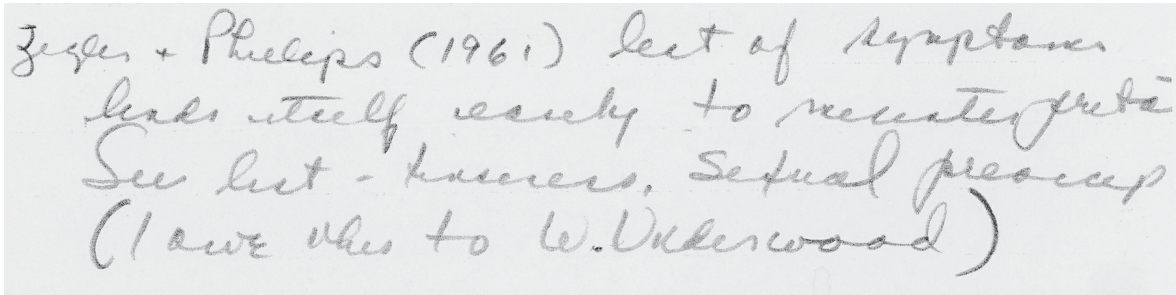 Zigler + Phillips (1961) list of symptoms
lends itself easily to
See list - tenseness, sexual preoccup
(I owe this to W. Underwood)